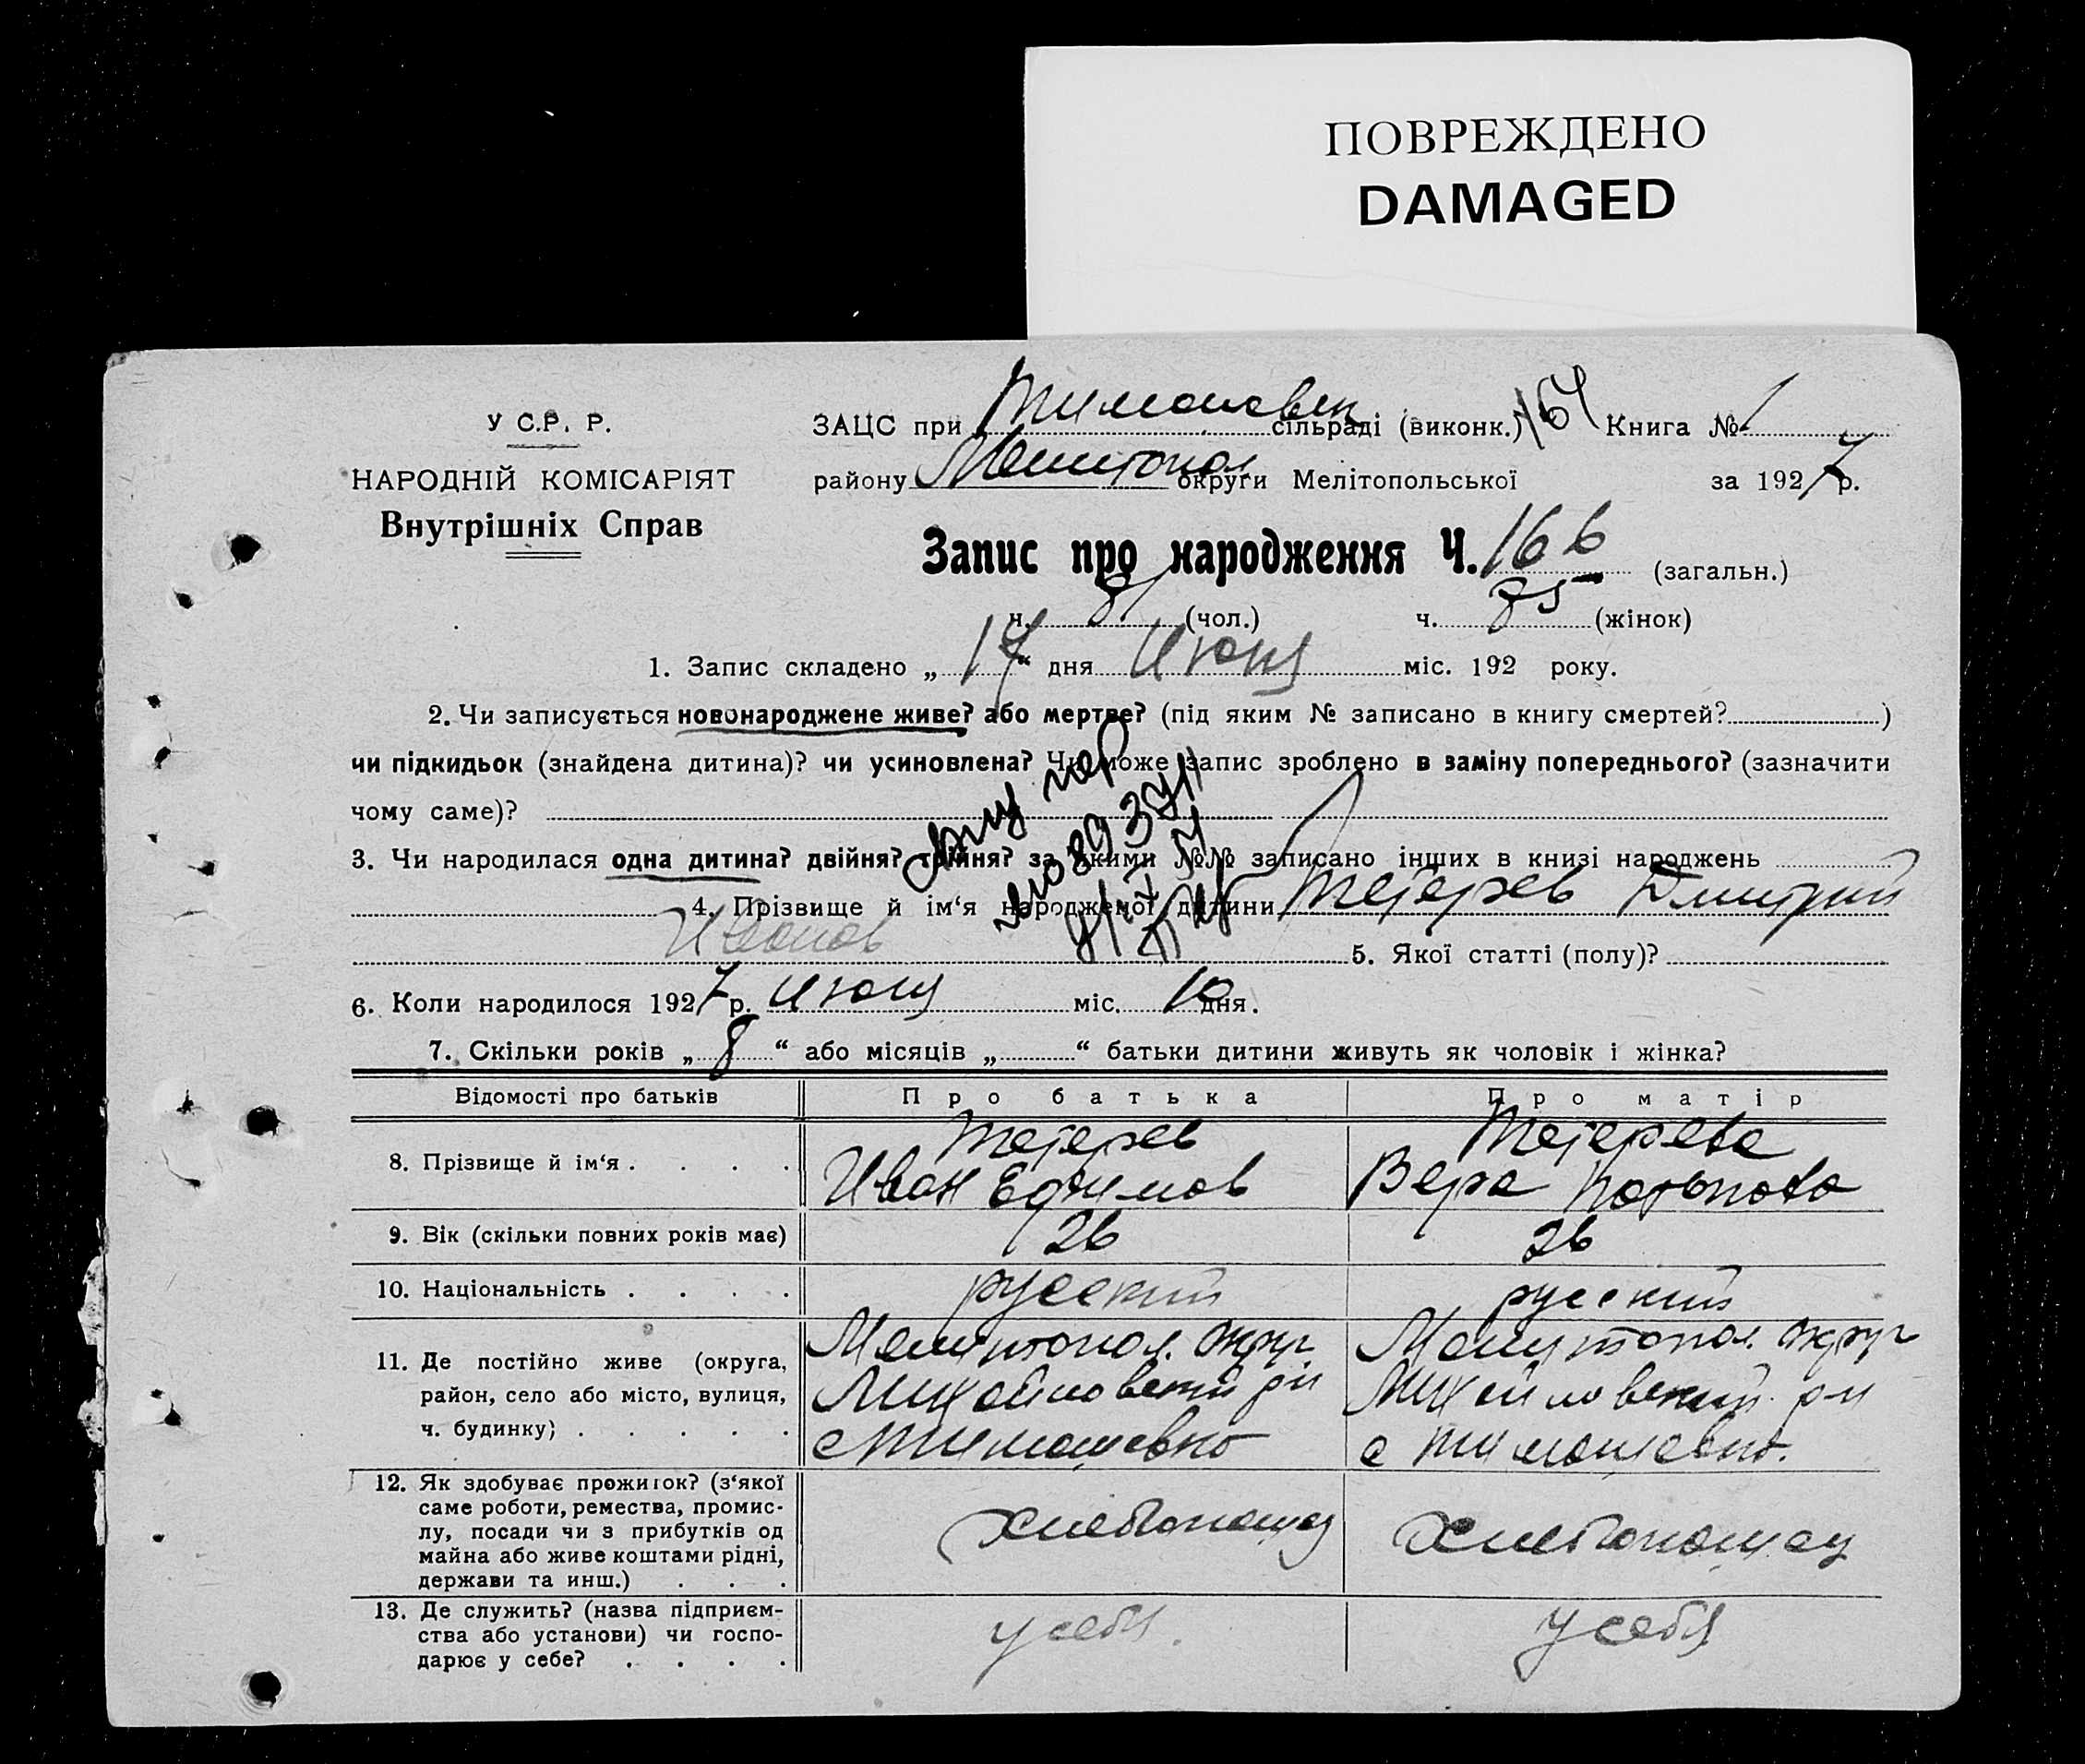 ПОВРЕЖДЕНО
DAMAGED
У С.Р. Р.
НАРОДНІЙ КОМІСАРІЯТ
Внутрішніх Справ
ЗАЦС при Тимошевск сільраді (виконк.) 164 Книга № 1
району Мелитопол округи Мелітопольської за 1927 р.
Запис про народження Ч. 166 (загальн.)
ч. 81 (чол.) ч. 85 (жінок)
1. Запис складено „ 17 “ дня Июня міс. 192 року.
2. Чи записується новонароджене живе? або мертве? (під яким № записано в книгу смертей? )
чи підкидьок (знайдена дитина)? чи усиновлена? Чи може запис зроблено в заміну попереднього? (зазначити
чому саме)?
3. Чи народилася одна дитина? двійня? трійня? за якими №№ записано інших в книзі народжень
4. Прізвище й ім‘я народженої дитини Тетерев Дмитрий
Иванов 5. Якої статті (полу)?
6. Коли народилося 1927 р. Июня міс. 10 дня.
7. Скільки років „ 8 “ або місяців „ “ батьки дитини живуть як чоловік і жінка?
Відомості про батьків Про батька Про матір
8. Прізвище й ім‘я . . . . Тетерев Иван Ефимов Тетерева Вера
9. Вік (скільки повних років має) 26 26
10. Національність . . . . русский русский
11. Де постійно живе (округа, Мелитопол. округ Мелитопол. округ
район, село або місто, вулиця, Михайловский р-н Михайловский р-н
ч. будинку) . . . . . с Тимошевка с Тимошевка.
12. Як здобуває прожиток? (з‘якої
саме роботи, ремества, промис-
лу, посади чи з прибутків од хлебопашец хлебопашец
майна або живе коштами рідні,
держави та инш.) . . .
13. Де служить? (назва підприєм-
ства або установи) чи госпо- у себя. у себя
дарює у себе? . . . .